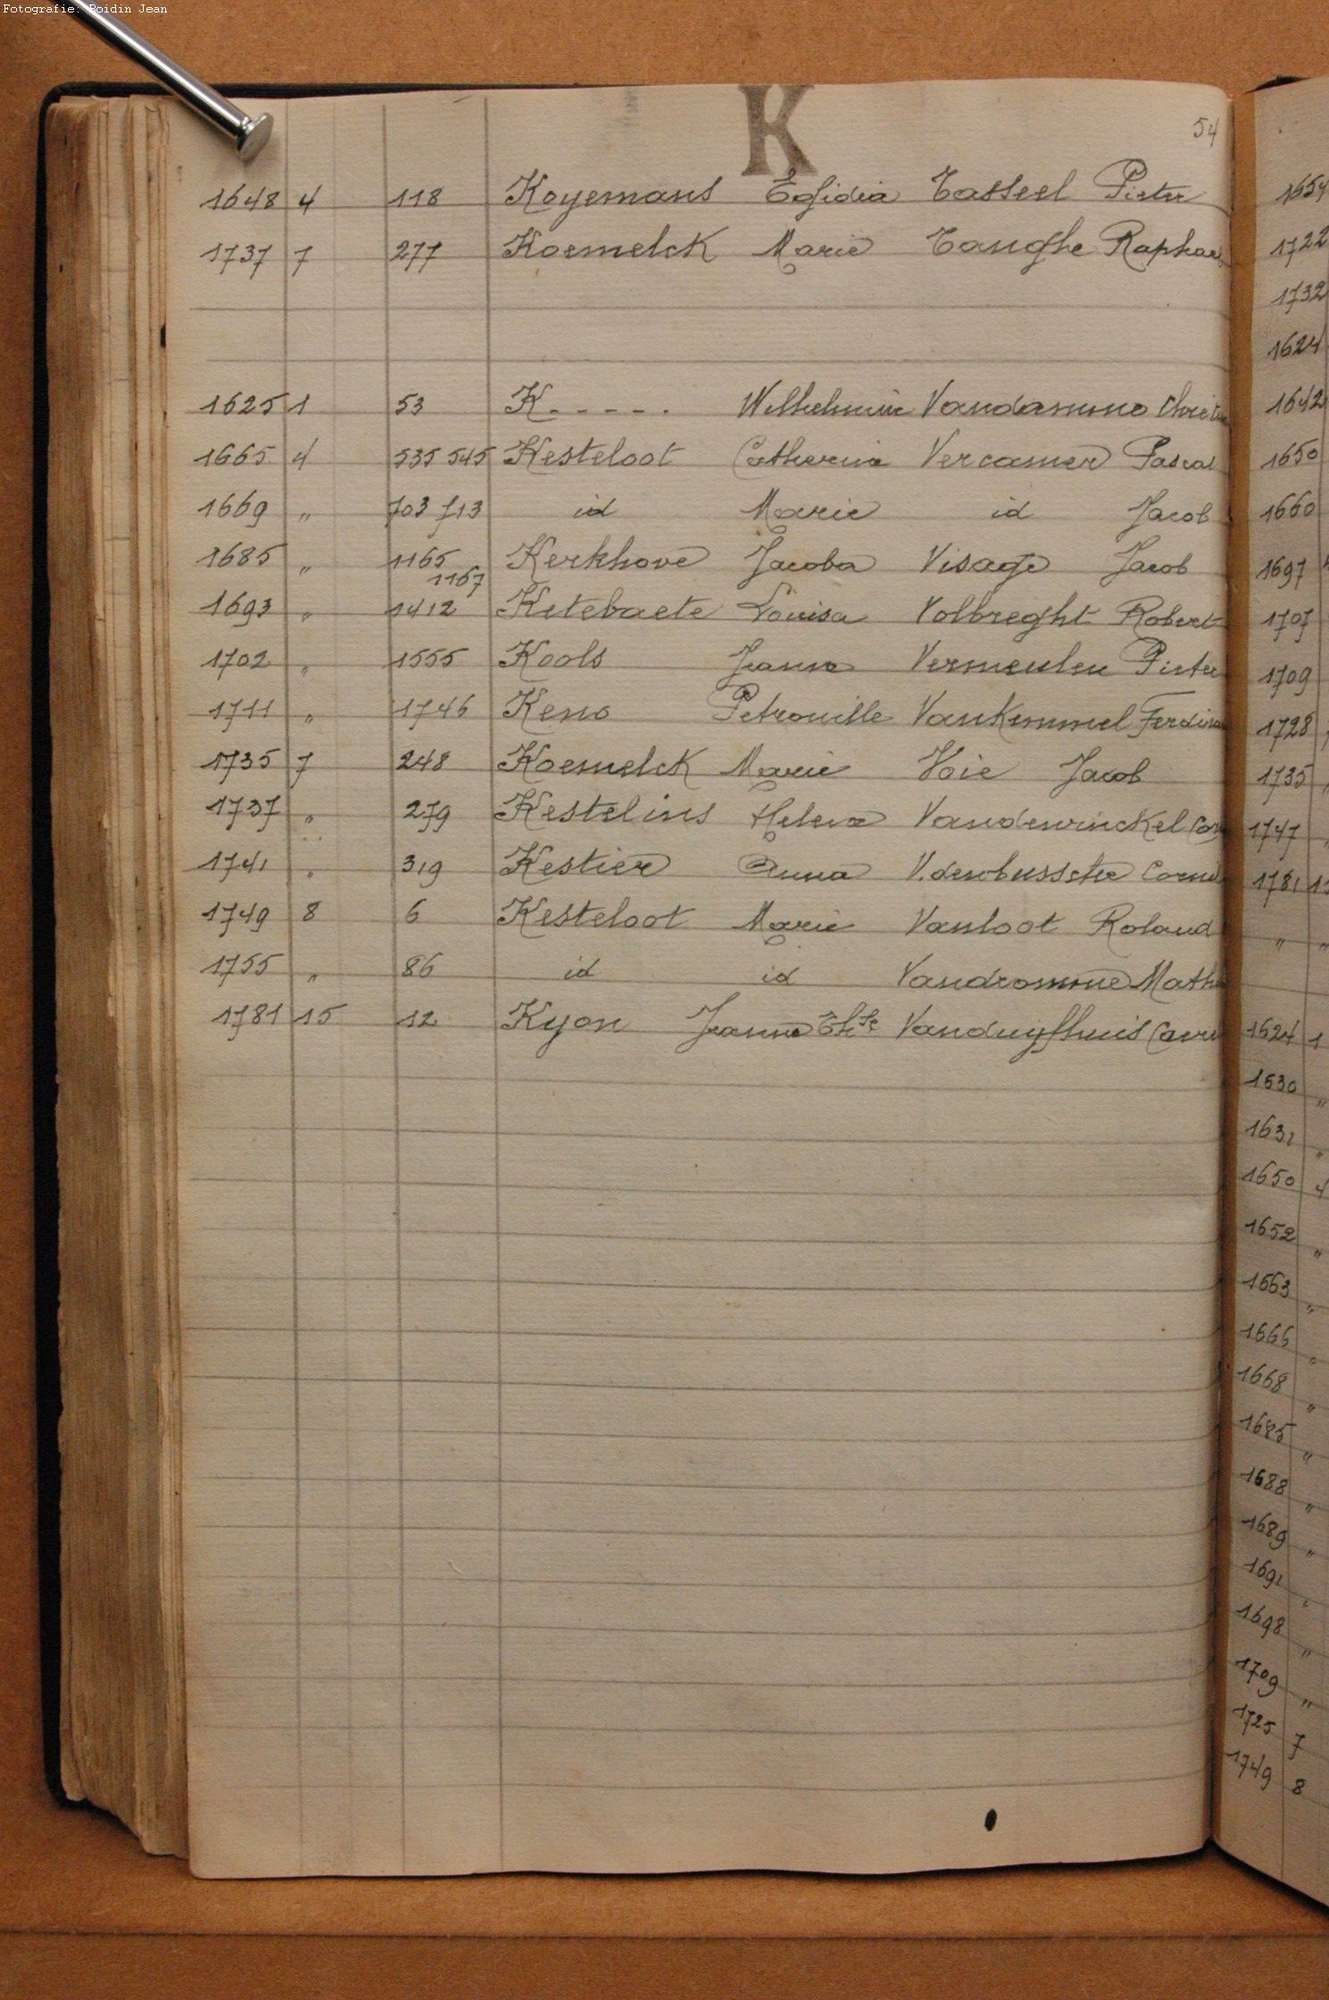 Fotografie: Poidin Jean
K
54
1648 4 118 Koyemans Egidia Tasseel Pieter
1737 7 277 Koemelck Marie Tanghe Raphae
1625 1 53 K. - - - - . Wilhelmine Vandamme
1665 4 535 545 Kesteloot Catherina Vercamer Pascal
1669 " 703 713 id Marie id Jacob
1685 " 1165 1167 Kerkhove Jacoba Visage Jacob
1693 " 1412 Ketebaete Louisa Volbreght Robert
1702 " 1555 Kools Jeanne Vermeulen Pieter
1711 " 1746 Keno Petronille Vankemmel Ferdina
1735 7 248 Koemelck Marie Voie Jacob
1737 " 279 Kestelins Helena Vandewinckel
1741 " 319 Kestier Anna V.denbussche Corneil
1749 8 6 Kesteloot Marie Vanloot Roland
1755 " 86 id id Vandromme Mathi
1781 15 12 Kyon Jeanne Thse Vanduyfhuis
1654
1722
1732
1624
1642
1650
1660
1697
1707
1709
1728
1735
1747
1781 15
" "
1624 1
1630 "
1631 "
1650 4
1652 "
1663 "
1666 "
1668 "
1685 "
1688 "
1689 "
1691 "
1698 "
1709 "
1725 7
1749 8